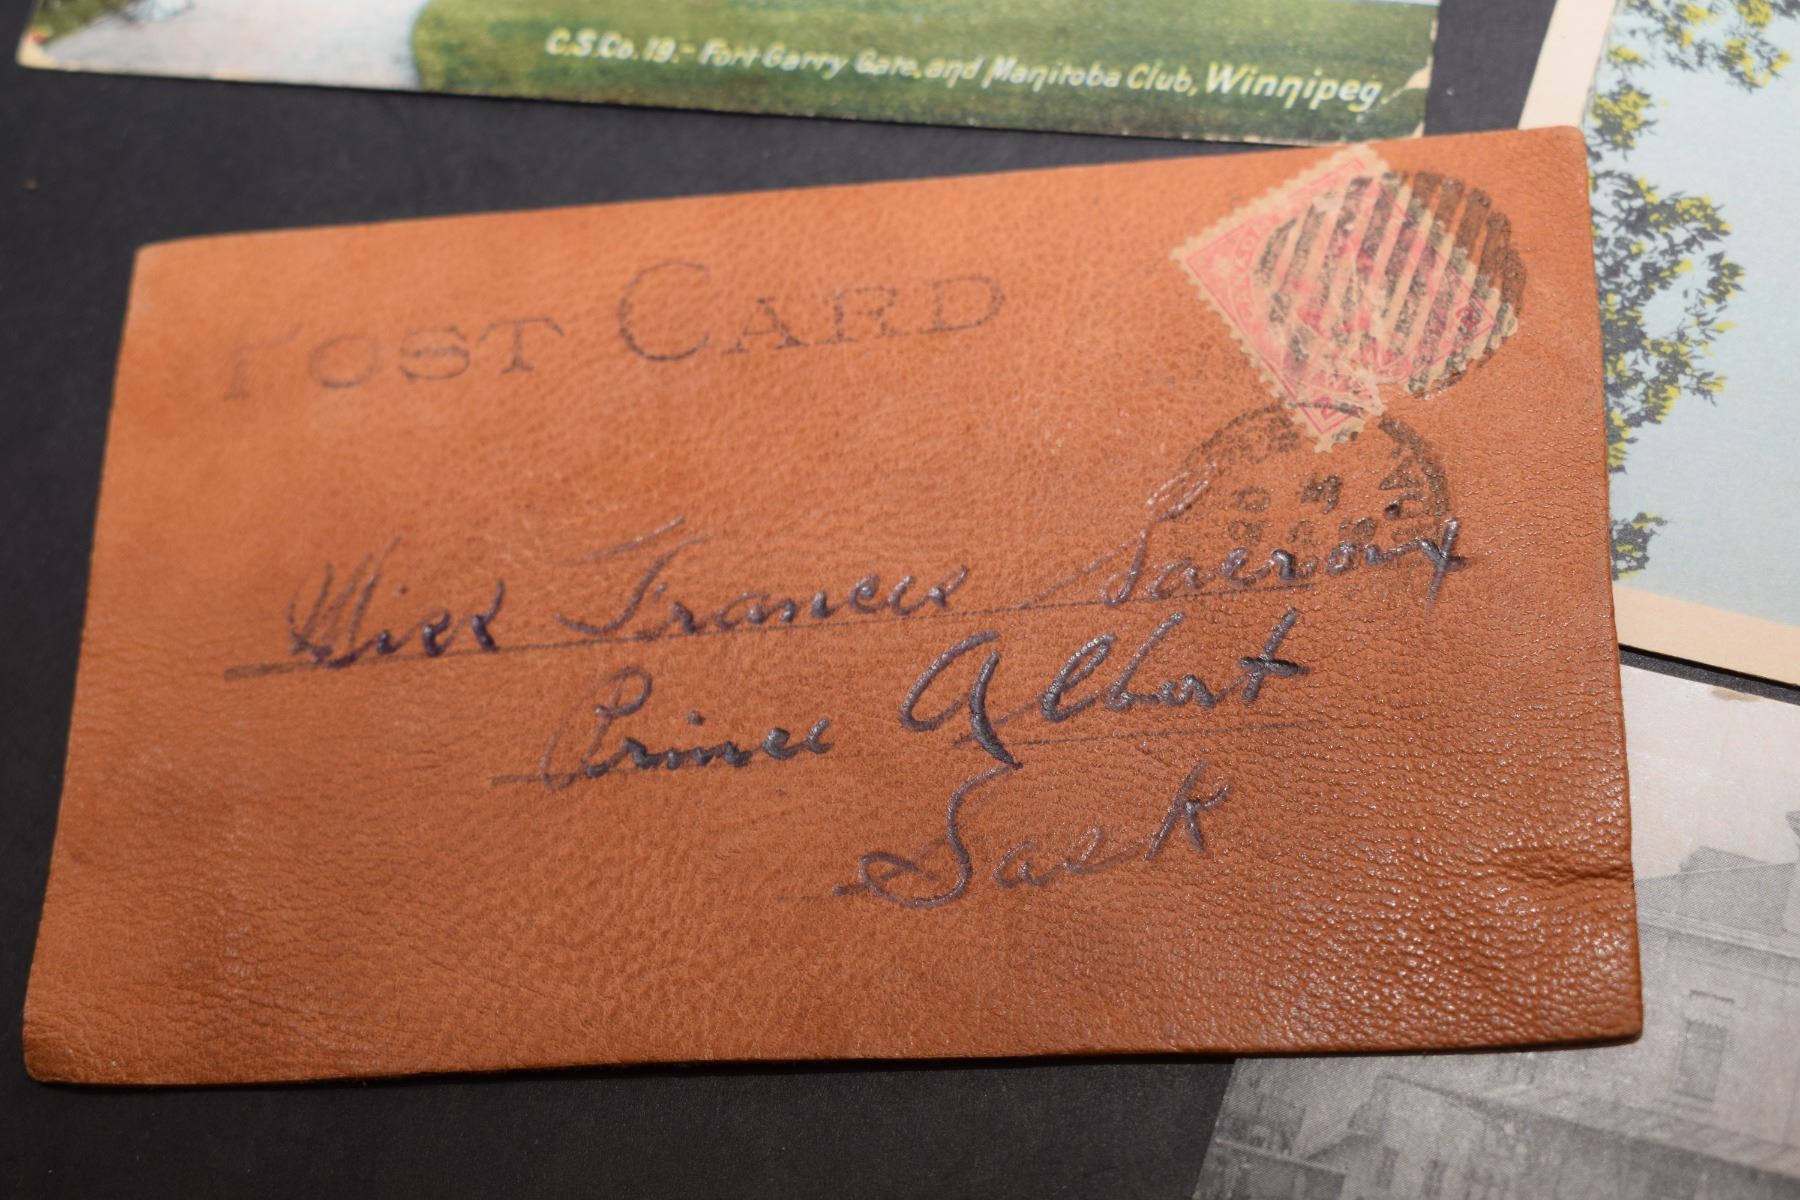 C.S.Co. 19.- Fort Garry Gate, and Manitoba Club, Winnipeg.
POST CARD
Miss Frances Lacroix
Prince Albert
Sask